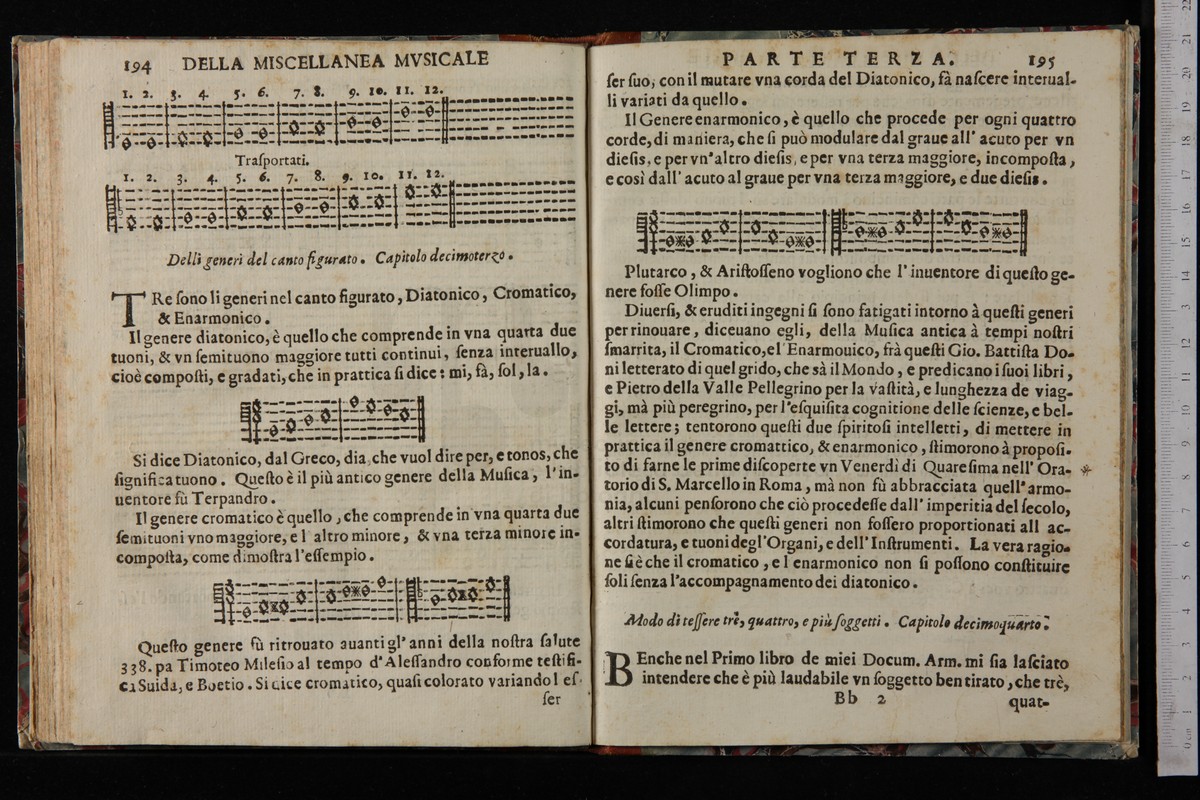 194 DELLA MISCELLANEA MVSICALE
1. 2. 3. 4. 5. 6. 7. 8. 9. 10. 11. 12.
Traſportati.
1. 2. 3. 4. 5. 6. 7. 8. 9. 10. 11. 12.
Delli generi del canto figurato. Capitolo decimoterzo.
TRe ſono li generi nel canto figurato, Diatonico, Cromatico,
& Enarmonico.
Il genere diatonico, è quello che comprende in vna quarta due
tuoni, & vn ſemituono maggiore tutti continui, ſenza interuallo,
cioè compoſti, e gradati, che in prattica ſi dice: mi, fà, ſol, la.
Si dice Diatonico, dal Greco, dia, che vuol dire per, e tonos, che
ſignifica tuono. Queſto è il più antico genere della Muſica, l'in-
uentore fù Terpandro.
Il genere cromatico è quello, che comprende in vna quarta due
ſemituoni vno maggiore, e l altro minore, & vna terza minore in-
compoſta, come dimoſtra l'eſſempio.
Queſto genere fù ritrouato auanti gl' anni della noſtra ſalute
338. pa Timoteo Mileſio al tempo d'Aleſſandro conforme teſtifi-
ca Suida, e Boetio. Si dice cromatico, quaſi colorato variando l eſ-
ſer
PARTE TERZA. 195
ſer ſuo, con il mutare vna corda del Diatonico, fà naſcere interual-
li variati da quello.
Il Genere enarmonico, è quello che procede per ogni quattro
corde, di maniera, che ſi può modulare dal graue all' acuto per vn
dieſis, e per vn'altro dieſis, e per vna terza maggiore, incompoſta,
e così dall' acuto al graue per vna terza maggiore, e due dieſis.
Plutarco, & Ariſtoſſeno vogliono che l'inuentore di queſto ge-
nere foſſe Olimpo.
Diuerſi, & eruditi ingegni ſi ſono fatigati intorno à queſti generi
per rinouare, diceuano egli, della Muſica antica à tempi noſtri
ſmarrita, il Cromatico, e l Enarmouico, frà queſti Gio. Battiſta Do-
ni letterato di quel grido, che sà il Mondo, e predicano i ſuoi libri,
e Pietro della Valle Pellegrino per la vaſtità, e lunghezza de viag-
gi, mà più peregrino, per l'eſquiſita cognitione delle ſcienze, e bel-
le lettere; tentorono queſti due ſpiritoſi intelletti, di mettere in
prattica il genere cromattico, & enarmonico, ſtimorono à propoſi-
to di farne le prime diſcoperte vn Venerdì di Quareſima nell' Ora- *
torio di S. Marcello in Roma, mà non fù abbracciata quell'armo-
nia, alcuni penſorono che ciò procedeſſe dall' imperitia del ſecolo,
altri ſtimorono che queſti generi non foſſero proportionati all ac-
cordatura, e tuoni degl'Organi, e dell'Inſtrumenti. La vera ragio-
ne ſi è che il cromatico, e l enarmonico non ſi poſſono conſtituire
ſoli ſenza l'accompagnamento dei diatonico.
Modo di teſſere trè, quattro, e più ſoggetti. Capitolo decimoquarto.
BEnche nel Primo libro de miei Docum. Arm. mi ſia laſciato
intendere che è più laudabile vn ſoggetto ben tirato, che trè,
Bb 2 quat-